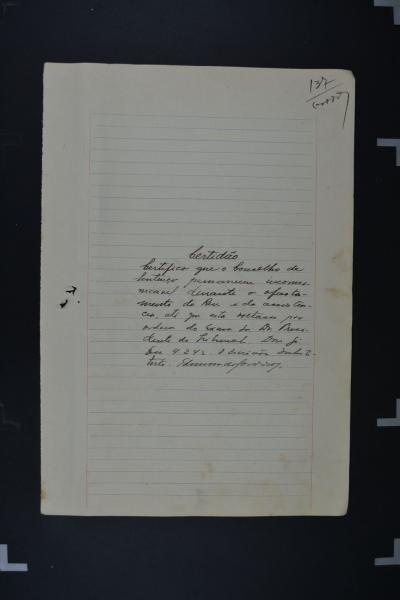 137
Certidão
Certifico que o Conselho de
Sentença permaneceu incomu-
nicavel durante o afasta-
mento do Reu e da assisten-
cia, até que esta voltasse por
ordem do Exmo. Sr. Dr. Presi-
dente do Tribunal. Dou fé.
Em 9.2.42. O Escrivão Substi-
tuto.